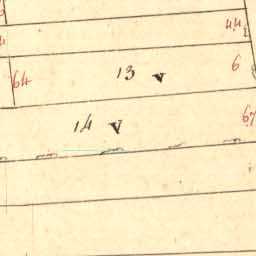 44
13 v 6
64
14 V 67